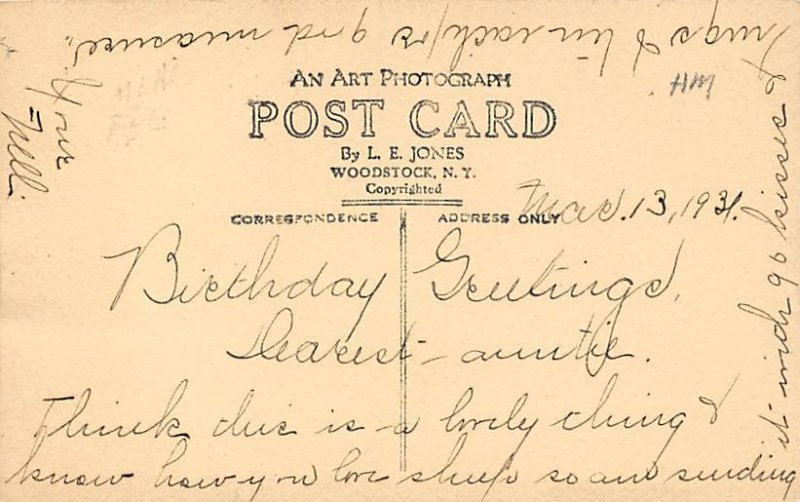 AN ART PHOTOGRAPH
POST CARD
By L. E. JONES
WOODSTOCK, N. Y.
Copyrighted
CORRESPONDENCE ADDRESS ONLY
Mar. 13, 1931.
Birthday Greetings,
Dearest auntie.
Think this is a lovely thing &
know how you love sheep so am sending
it with 96 kisses &
hugs & for good measure,
Your
Nell.
HM